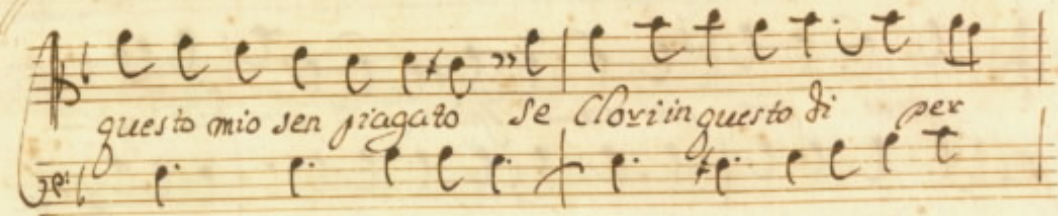 questo mio sen piagato se Clori in questo di per